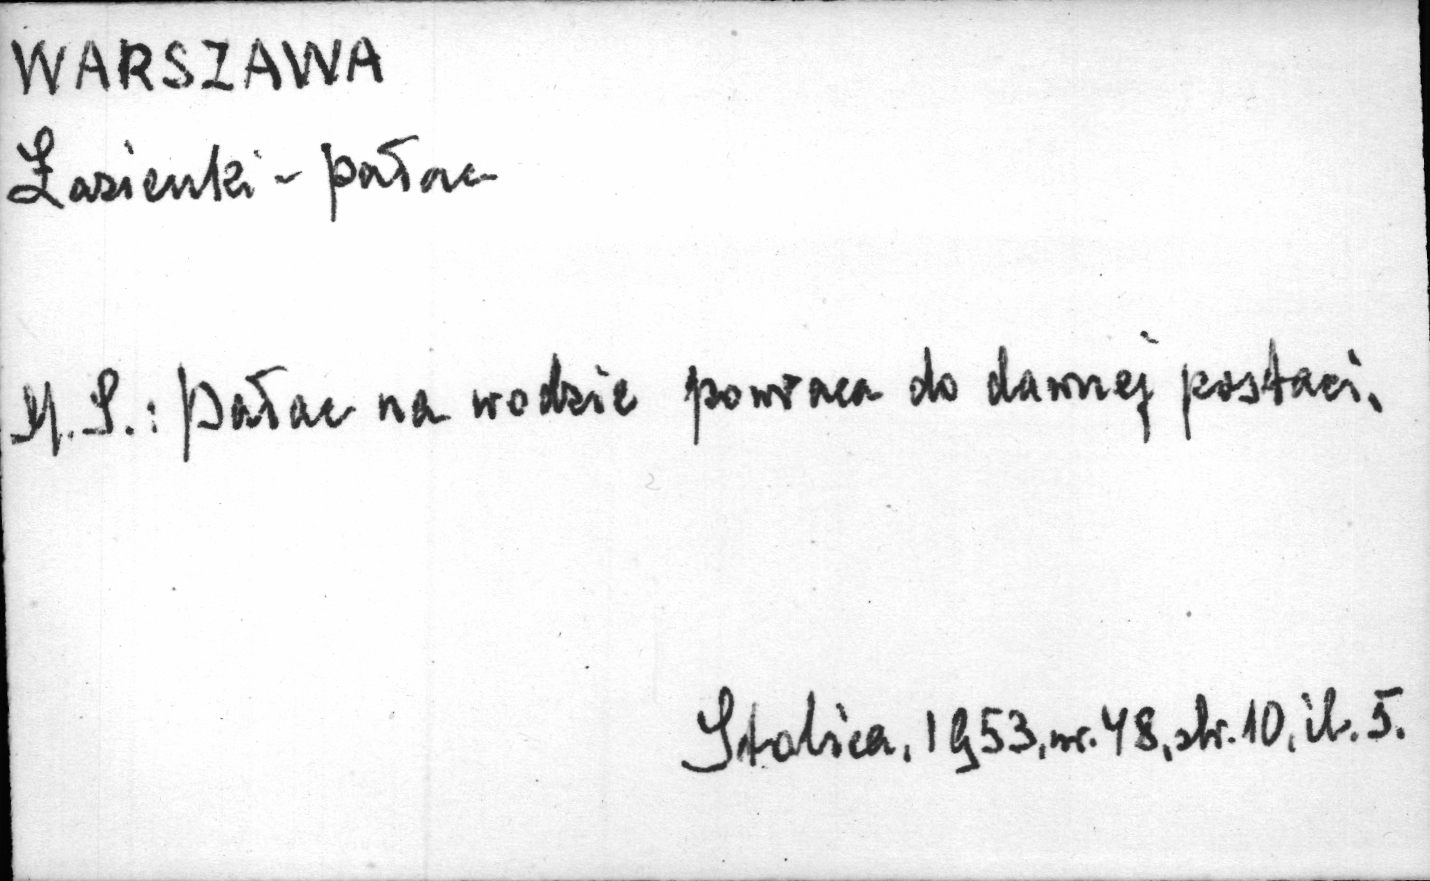 WARSZAWA
Łazienki - pałac
M. S.: Pałac na wodzie powraca do dawnej postaci.
Stolica, 1953, nr. 48, str. 10, il. 5.